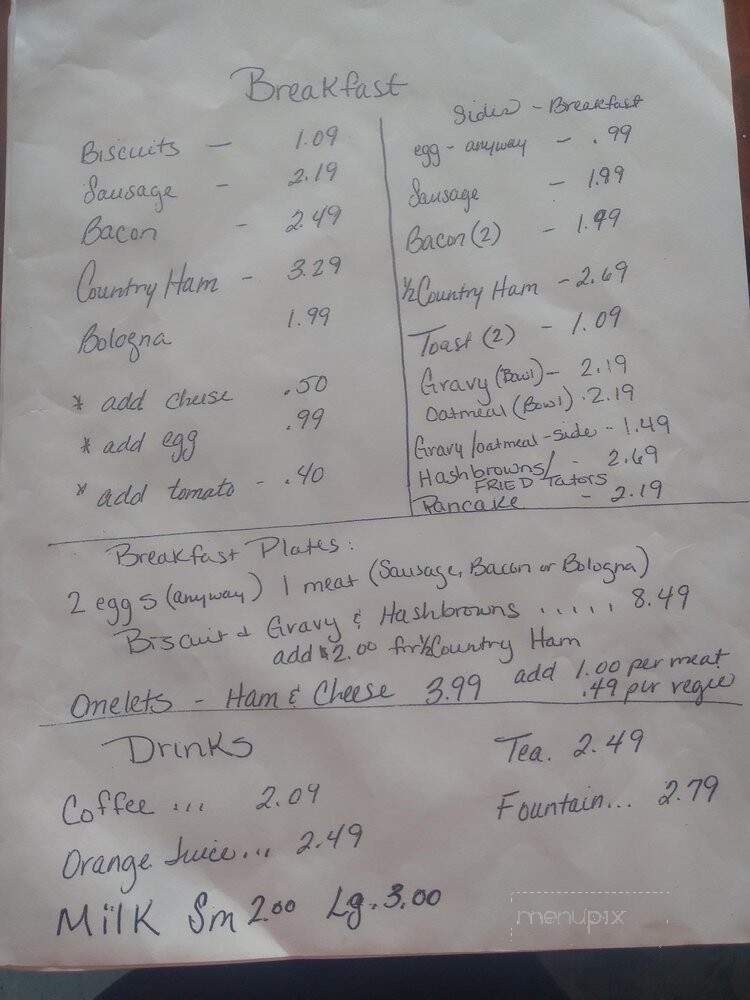 Breakfast
Biscuits - 1.09
Sausage - 2.19
Bacon - 2.49
Country Ham - 3.29
Bologna 1.99
* add cheese .50
* add egg .99
* add tomato - .40
Sides - Breakfast
egg - anyway - .99
Sausage - 1.89
Bacon (2) - 1.99
½ Country Ham - 2.69
Toast (2) - 1.09
Gravy (Bowl) - 2.19
Oatmeal (Bowl) . 2.19
Gravy/oatmeal - side - 1.49
Hashbrowns/ - 2.69
FRIED Tators
Pancake - 2.19
Breakfast Plates:
2 eggs (anyway) 1 meat (Sausage, Bacon or Bologna)
Biscuit & Gravy & Hashbrowns ..... 8.49
add $2.00 for ½ Country Ham
Omelets - Ham & Cheese 3.99 add 1.00 per meat
.49 per vegie
Drinks
Coffee ... 2.09
Orange Juice... 2.49
Milk Sm 2.00 Lg. 3.00
Tea. 2.49
Fountain... 2.79
menupix